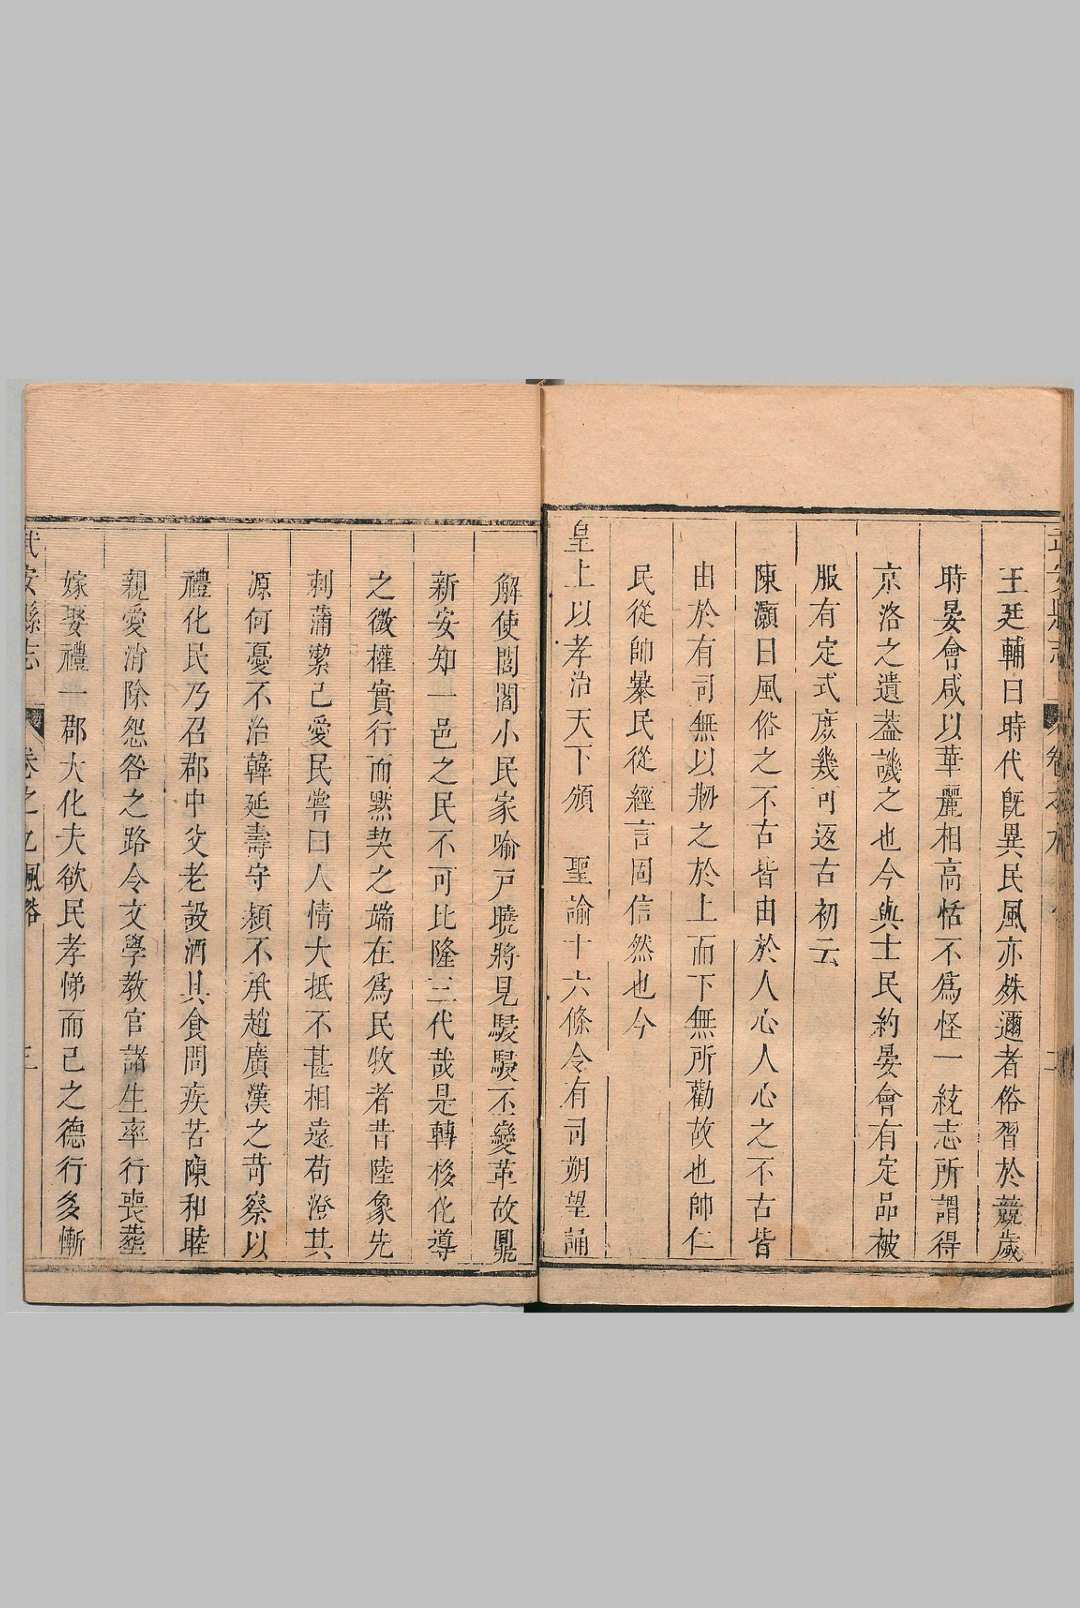 武安縣志
王廷輔曰時代旣異民風亦殊邇者俗習於競歲
時晏會咸以華麗相高恬不爲怪一統志所謂得
京洛之遺蓋譏之也今與士民約晏會有定品被
服有定式庶幾可返古初云
陳灝曰風俗之不古皆由於人心人心之不古皆
由於有司無以刱之於上而下無所勸故也帥仁
民從帥暴民從經言固信然也今
皇上以孝治天下頒 聖諭十六條令有司朔望誦
解使閭閻小民家喻戸曉將見駸駸丕變革故鼎
新安知一邑之民不可比隆三代哉是轉移化導
之微權實行而黙契之端在爲民牧者昔陸象先
刺蒲潔己愛民嘗曰人情大抵不甚相遠苟澄其
源何憂不治韓延壽守潁不承趙廣漢之苛察以
禮化民乃召郡中父老設酒具食問疾苦陳和睦
親愛消除怨咎之路令文學教官諸生率行喪塟
嫁娶禮一郡大化夫欲民孝悌而己之德行多慚
武安縣志 卷之九 風俗 三